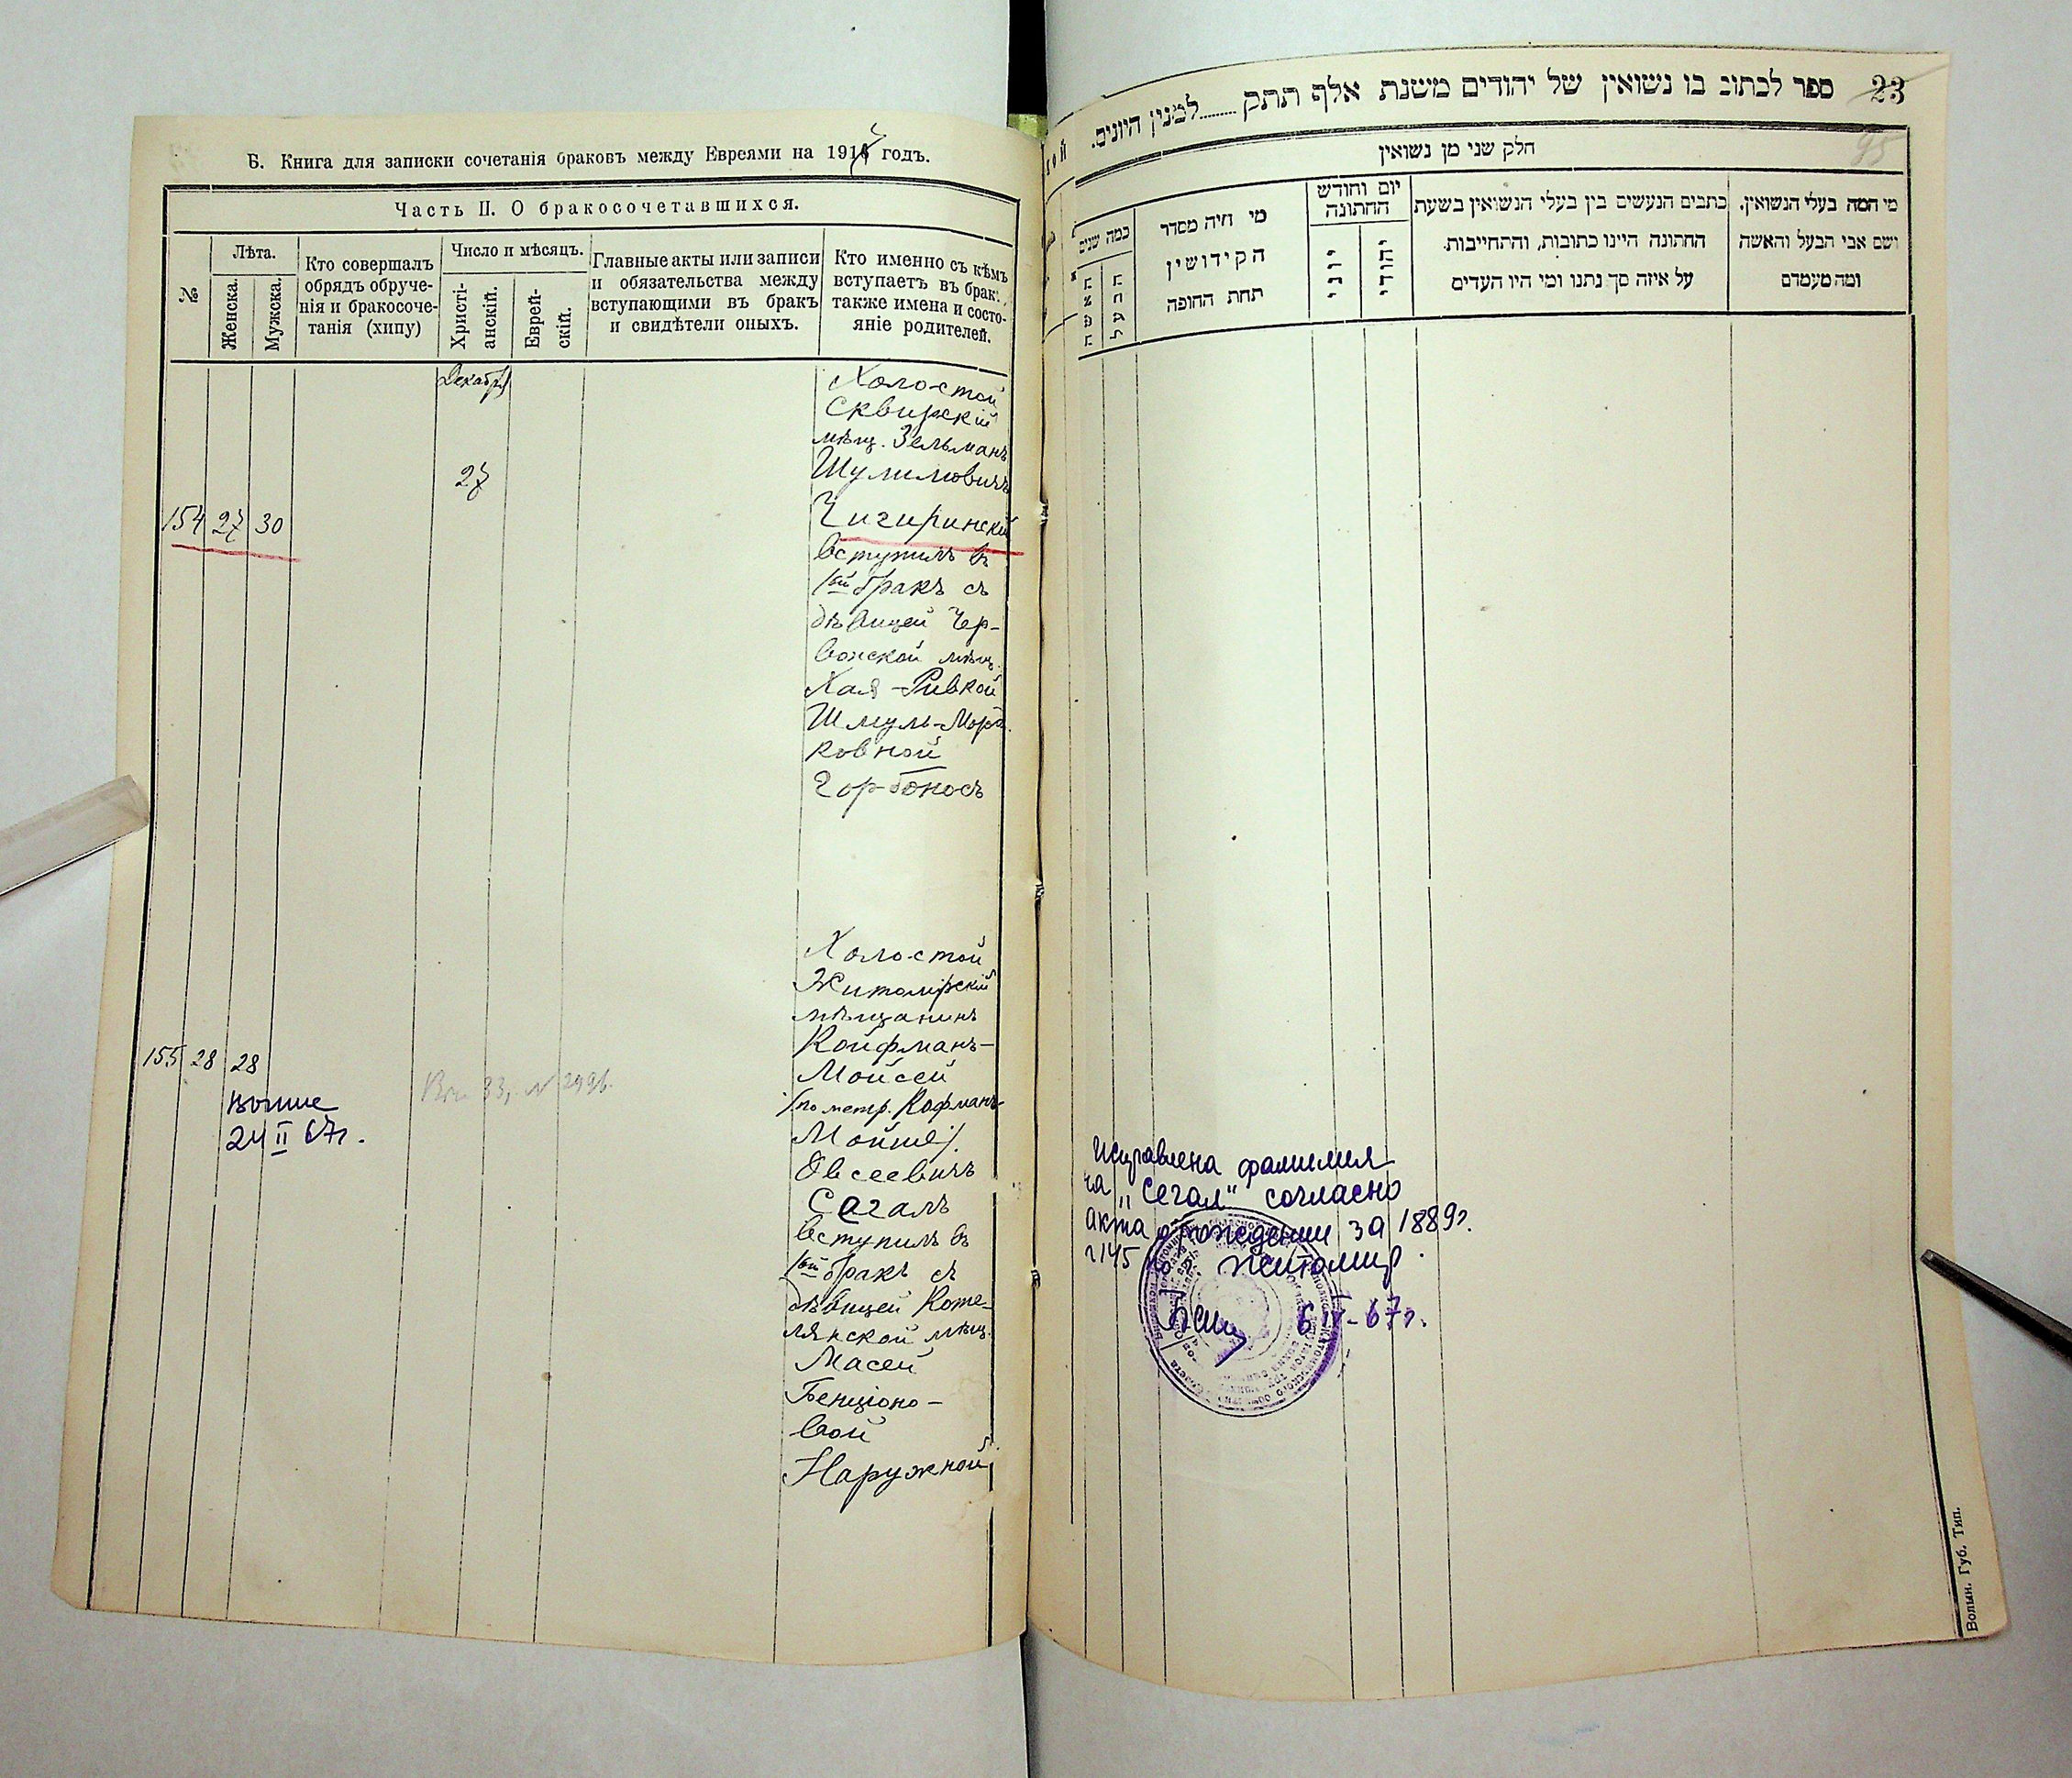 Б. Книга для записки сочетанія браковъ между Евреями на 191 годъ.
Часть II. О бракосочетавшихся.
№
Лѣта.
Женска.
Мужска.
Кто совершалъ
обрядъ обруче-
нія и бракосоче-
танія (хипу)
Число и мѣсяцъ.
Христі-
анскій.
Еврей-
скій.
Главные акты или записи
и обязательства между
вступающими въ бракъ
и свидѣтели оныхъ.
Кто именно съ кѣмъ
вступаетъ въ бракъ,
также имена и состо-
яніе родителей.
Декабрь
27
154 27 30
Холостой
Сквирскій
мѣщ. Зельманъ
Шулимовичъ
Чигиринскій
вступилъ въ
1ый бракъ съ
дѣвицей Чер-
вонской мѣщ.
Хая-Ривкой
Шмуль-Морд-
ковной
Горбоносъ
155 28 28
Холостой
Житомірскій
мѣщанинъ
Койфманъ-
Мойсей
/по метр. Кофманъ-
Мойше/
Овсеевичъ
Сегалъ
вступилъ въ
1ый бракъ съ
дѣвицей Коте-
лянской мѣщ.
Масей
Бенціоно-
вой
Наружной
24 II 67г.
23
95
ספר לכתוב בו נשואין של יהודים משנת אלף תתק למנין היונים.
חלק שני מן נשואין
כמה שנים
האשה
הבעל
מי היה מסדר
הקידושין
תחת החופה
יום וחודש
החתונה
יוני
יהודי
כתבים הנעשים בין בעלי הנשואין בשעת
החתונה היינו כתובות, והתחייבות.
על איזה סך נתנו ומי היו העדים
מי המה בעלי הנשואין.
ושם אבי הבעל והאשה
ומה מעמדם
Исправлена фамилия
на „Сегал" согласно
акта о рождении за 1889г.
№145 по г. Житомир.
6 IV-67г.
Волын. Губ. Тип.